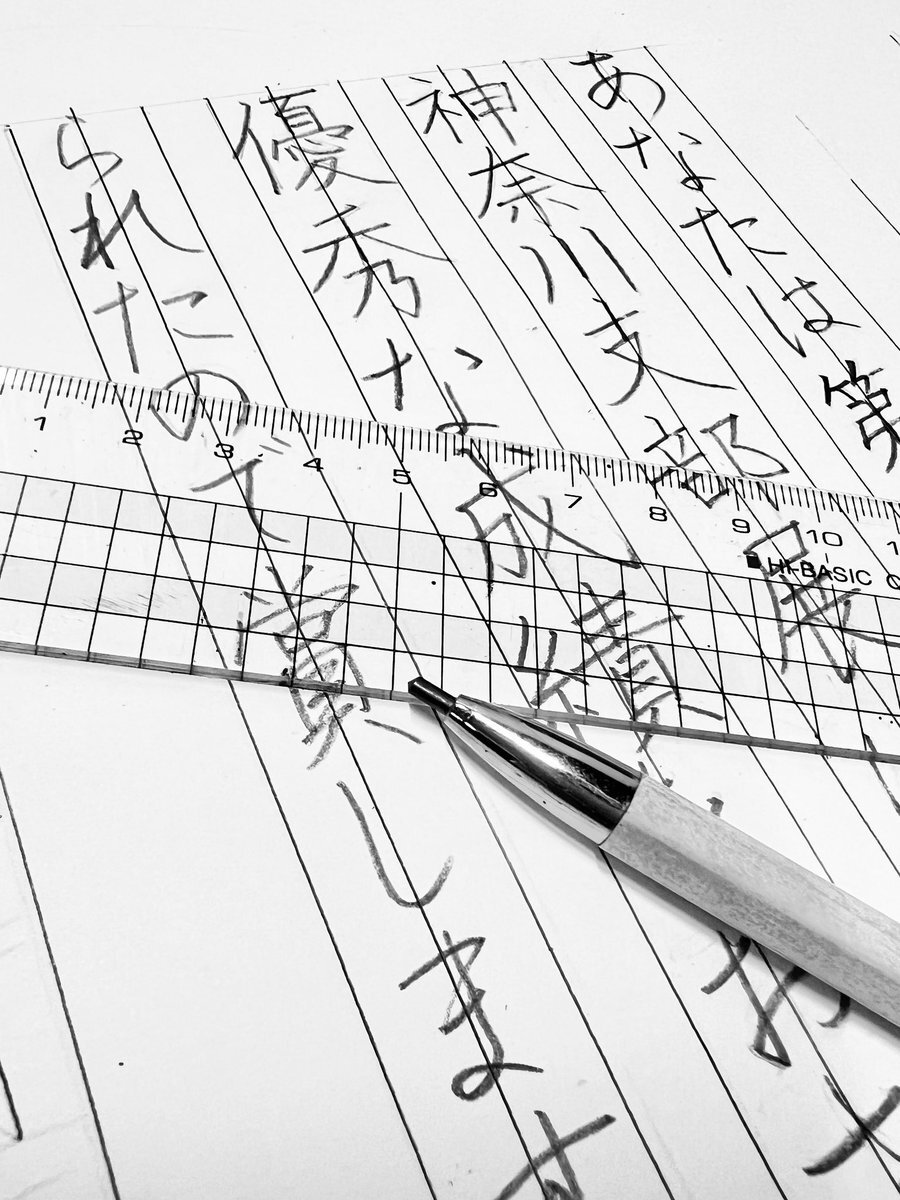 あなたは第
神奈川支部展
優秀な成績をお
られたので賞します
1 2 3 4 5 6 7 8 9 10
HI-BASIC